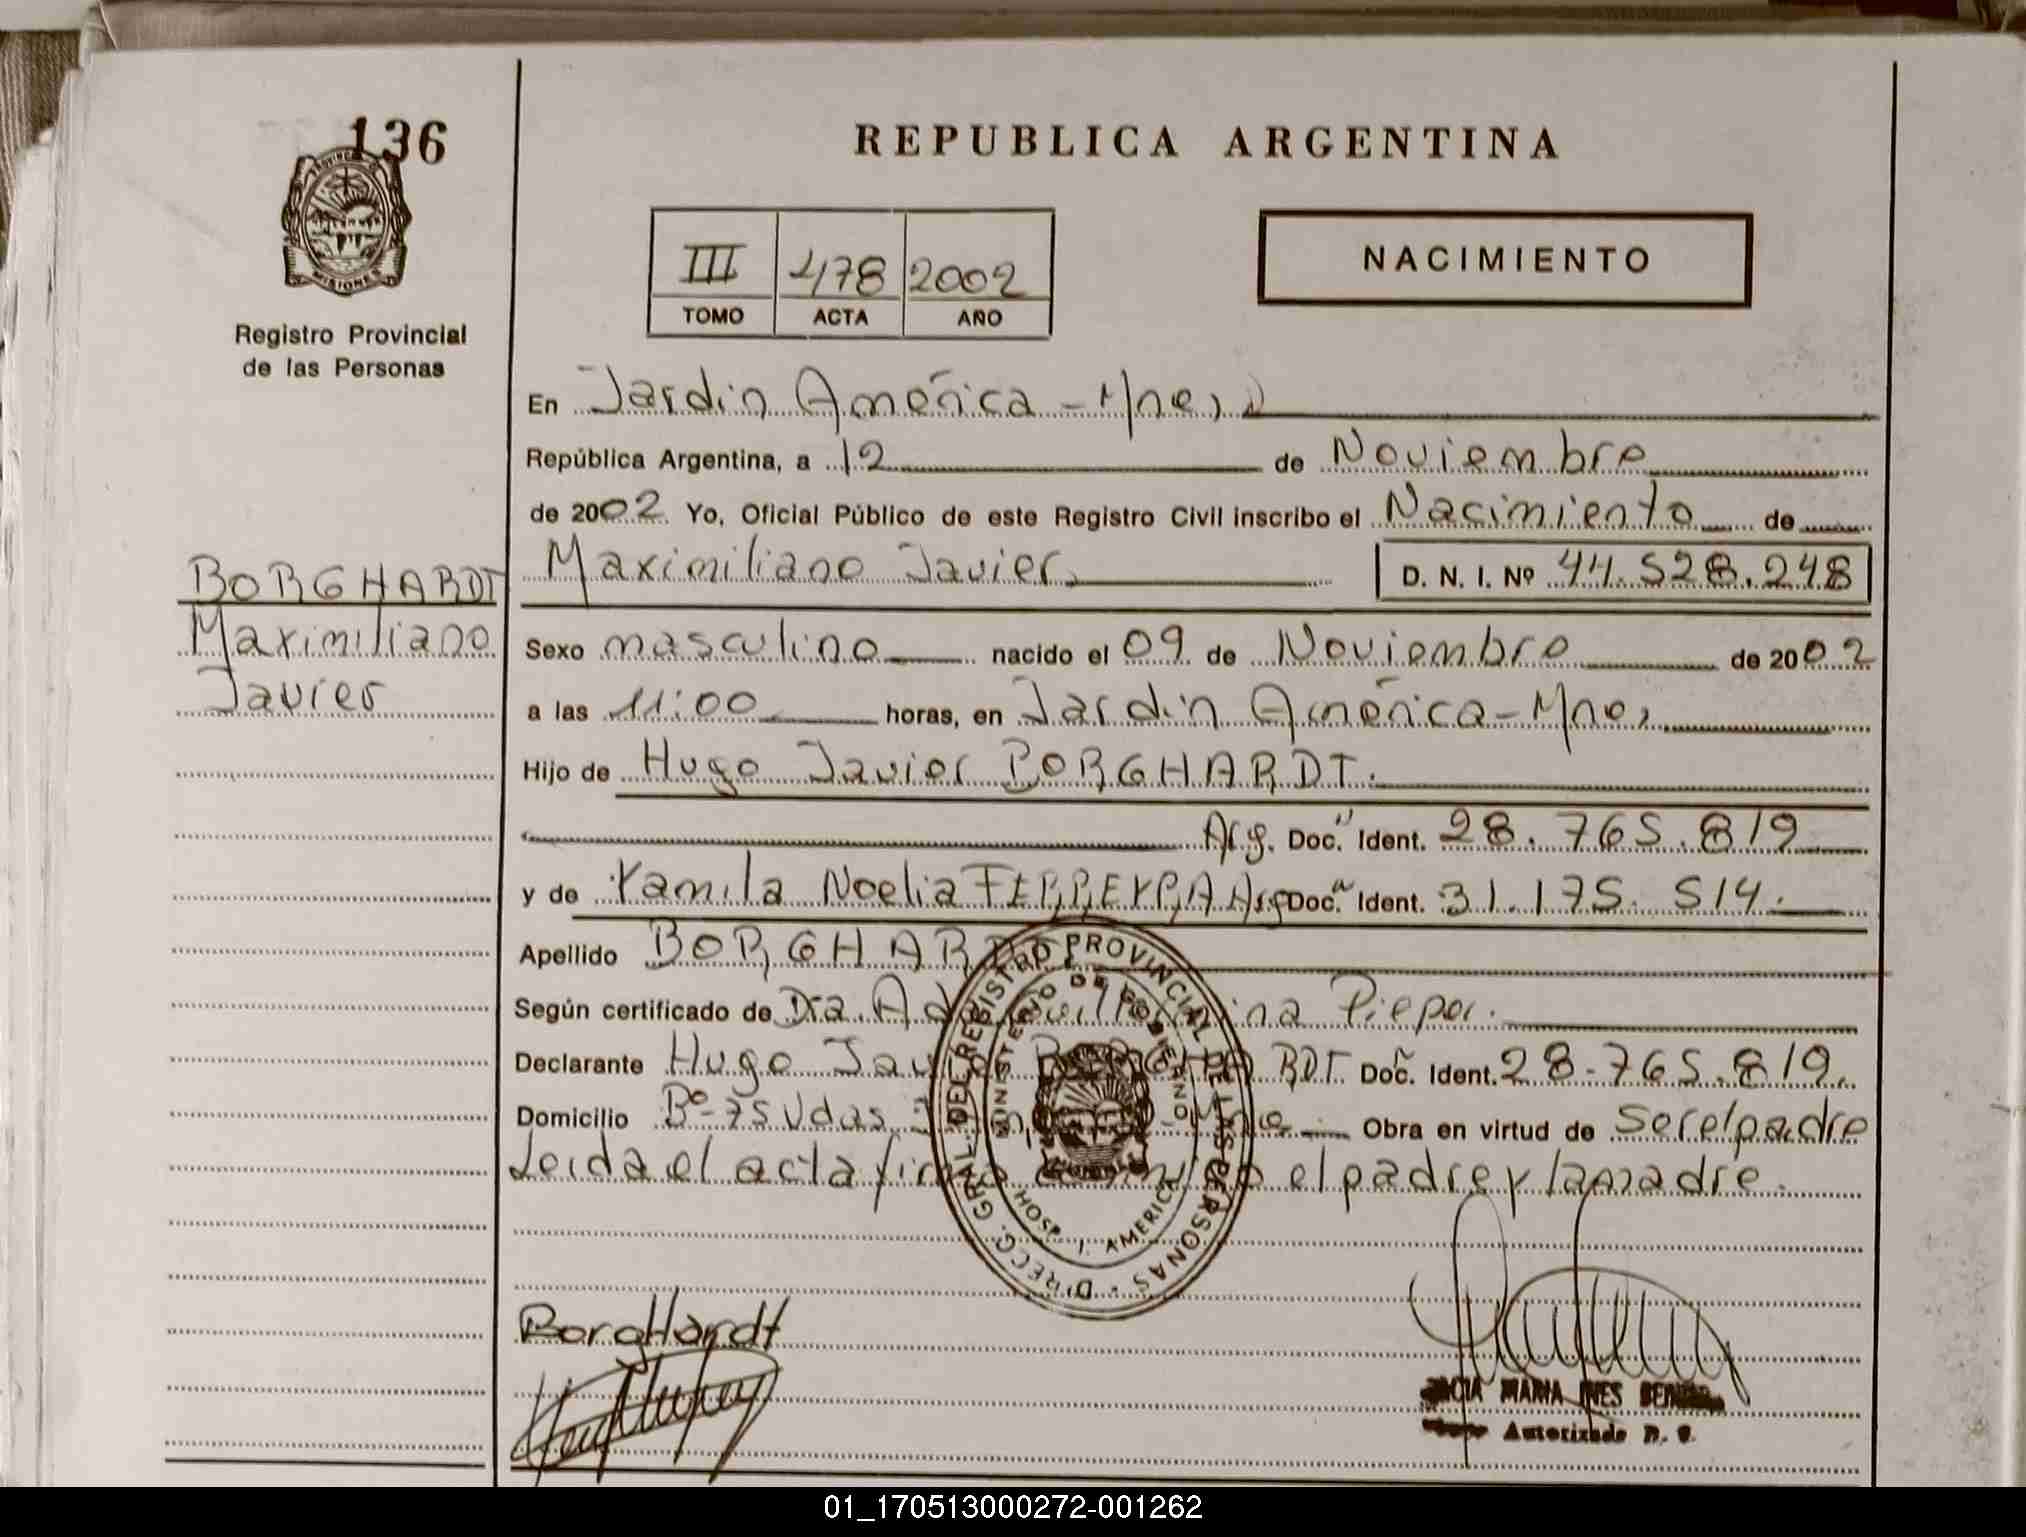 136
REPUBLICA ARGENTINA
MISIONES
Registro Provincial
de las Personas
III 478 2002
TOMO ACTA AÑO
NACIMIENTO
En Jardin América - Mnes,
República Argentina, a 12 de Noviembre
de 2002 Yo, Oficial Público de este Registro Civil inscribo el Nacimiento de
BORGHARDT
Maximiliano
Javier
Maximiliano Javier, D. N. I. Nº 44.528.248
Sexo masculino nacido el 09 de Noviembre de 2002
a las 11:00 horas, en Jardin América - Mnes,
Hijo de Hugo Javier BORGHARDT.
Arg. Doc. Ident. 28.765.819
y de Yamila Noelia FERREYRA Arg Doc. Ident. 31.175.514.
Apellido BORGHARDT
Según certificado de Dra. Pieper.
Declarante Hugo Javier BORGHARDT Doc. Ident. 28-765.819.
Domicilio Bº-75 Vdas. Obra en virtud de ser el padre
Leida el acta el padre y la madre.
DIRECC. GRAL. DEL REGISTRO PROVINCIAL DE LAS PERSONAS
MINISTERIO DE GOBIERNO
HOSP. J. AMERICA
BorgHardt
MARIA INES
Autorizado
01_170513000272-001262